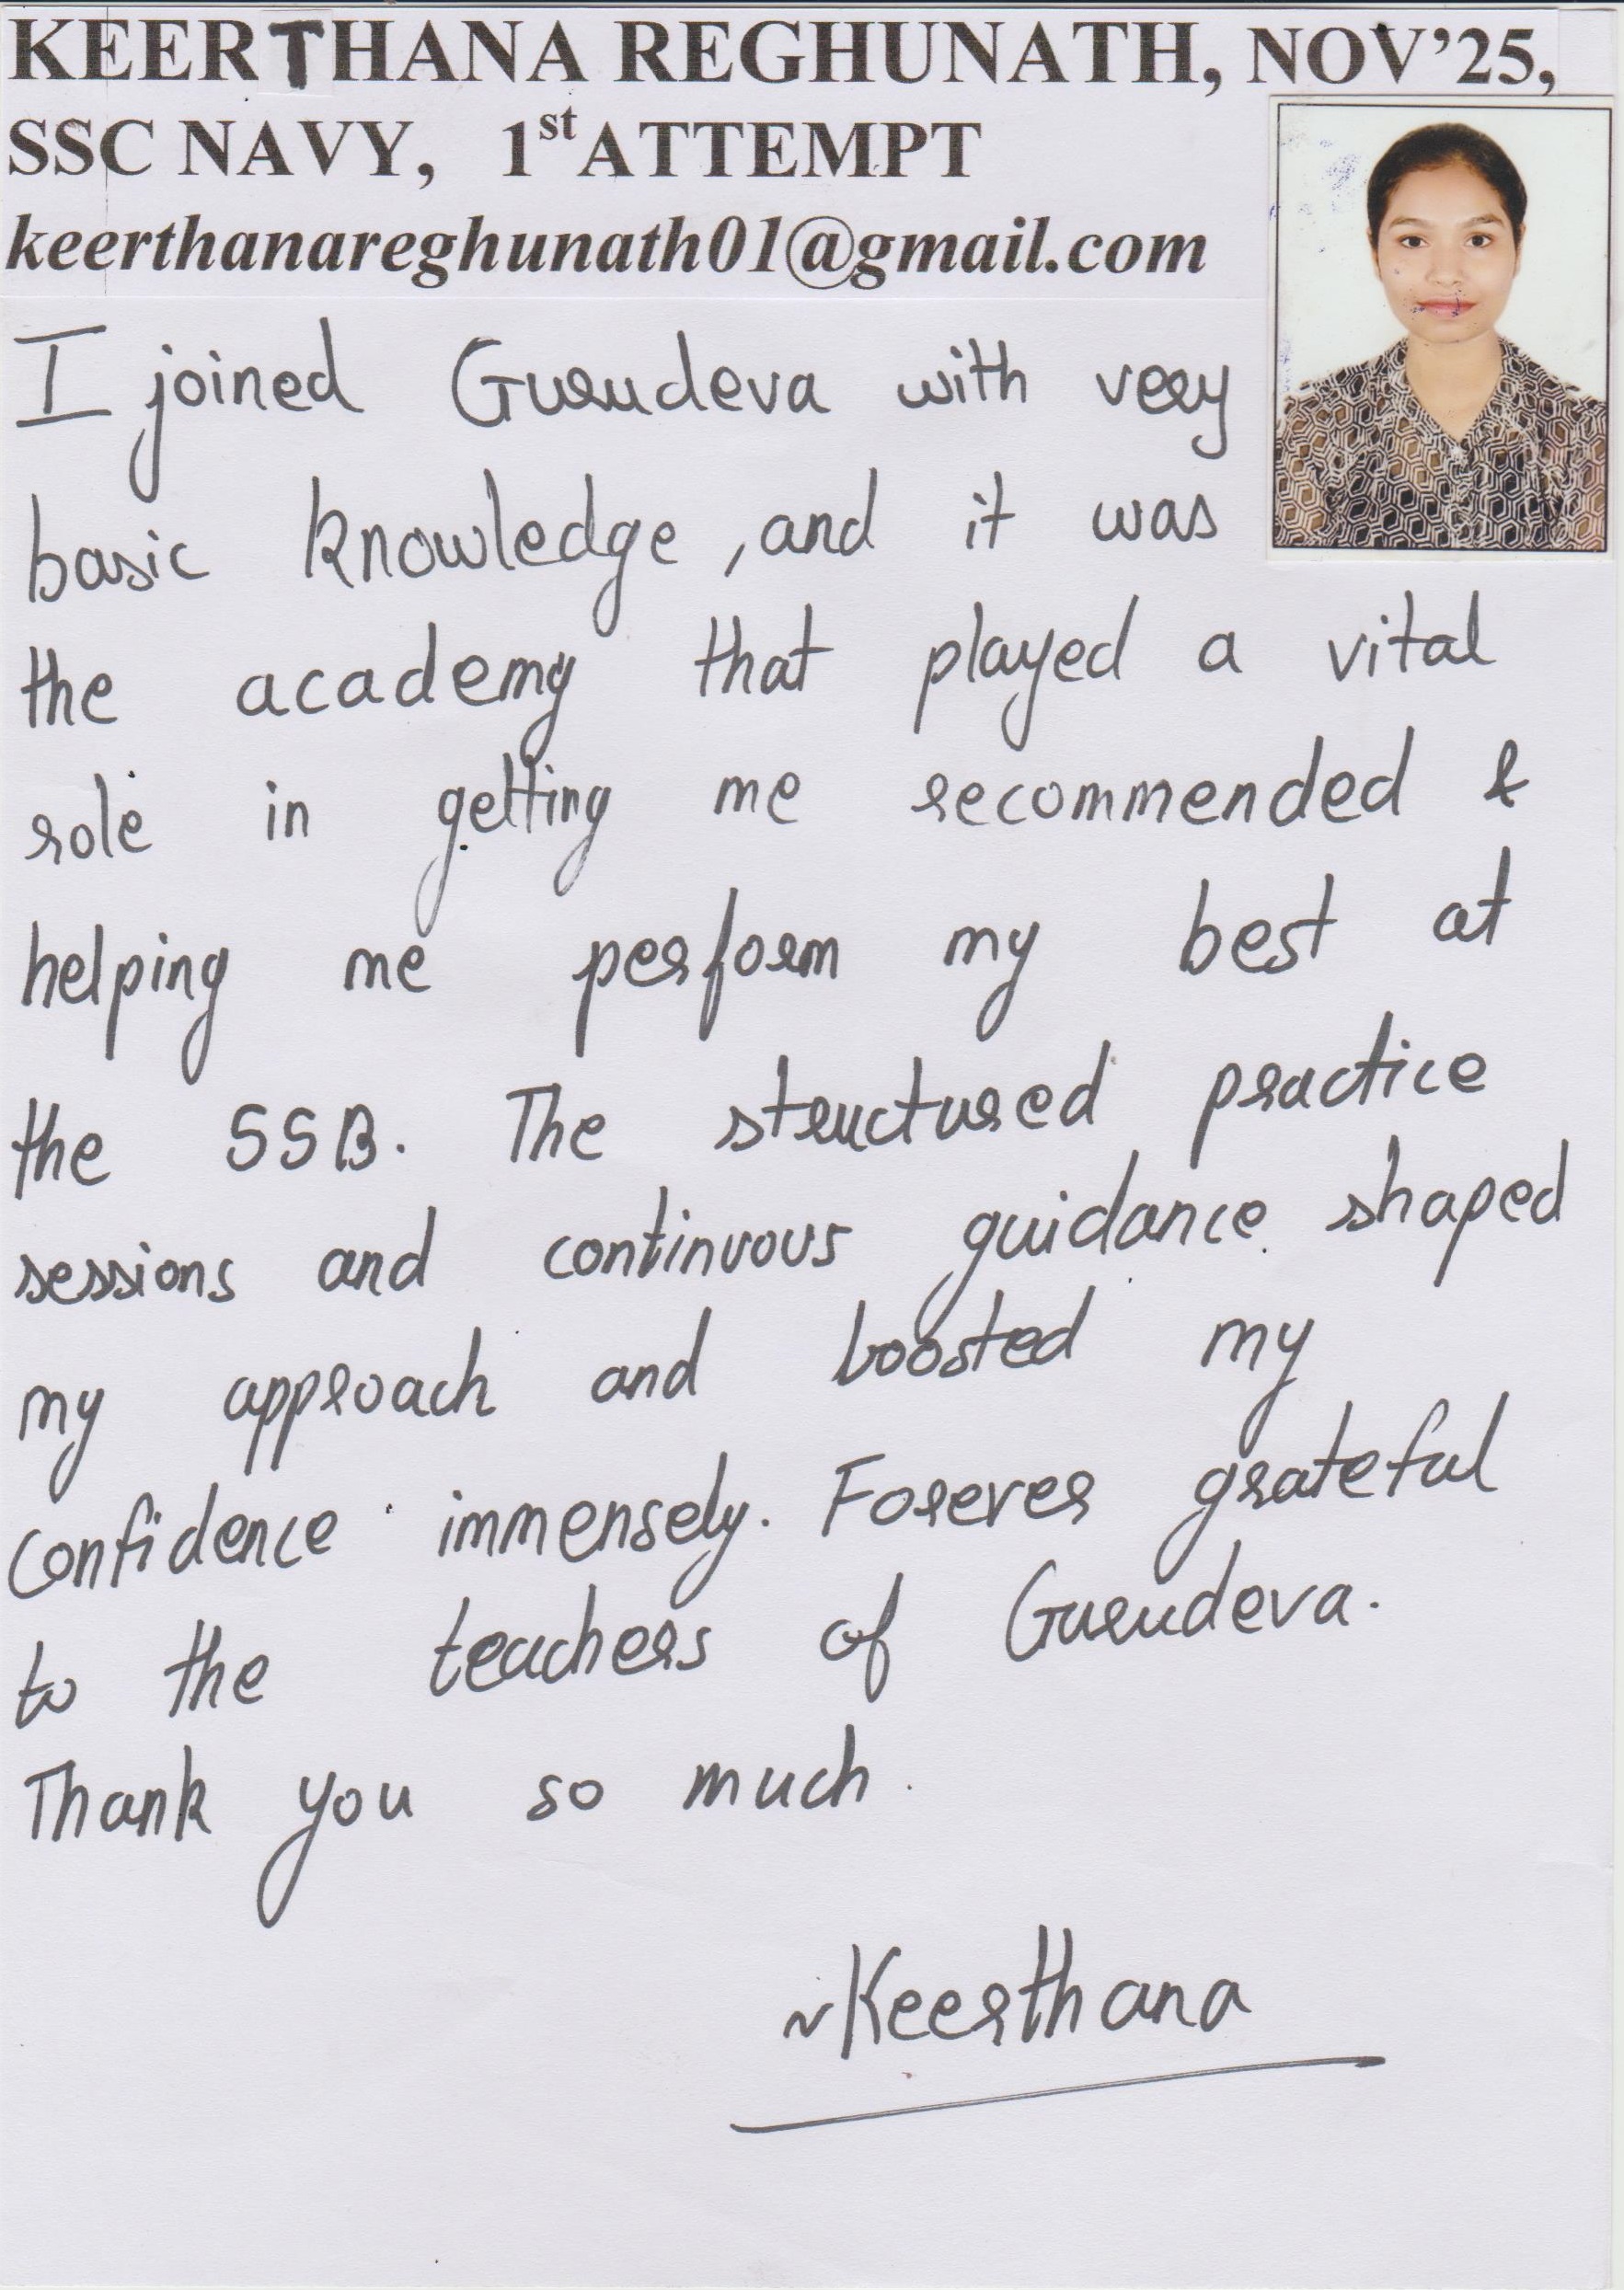 KEERTHANA REGHUNATH, NOV'25,
SSC NAVY, 1st ATTEMPT
keerthanareghunath01@gmail.com
I joined Gurudeva with very
basic knowledge, and it was
the academy that played a vital
role in getting me recommended &
helping me perform my best at
the SSB. The structured practice
sessions and continuous guidance shaped
my approach and boosted my
confidence immensely. Forever grateful
to the teachers of Gurudeva.
Thank you so much.
~Keerthana